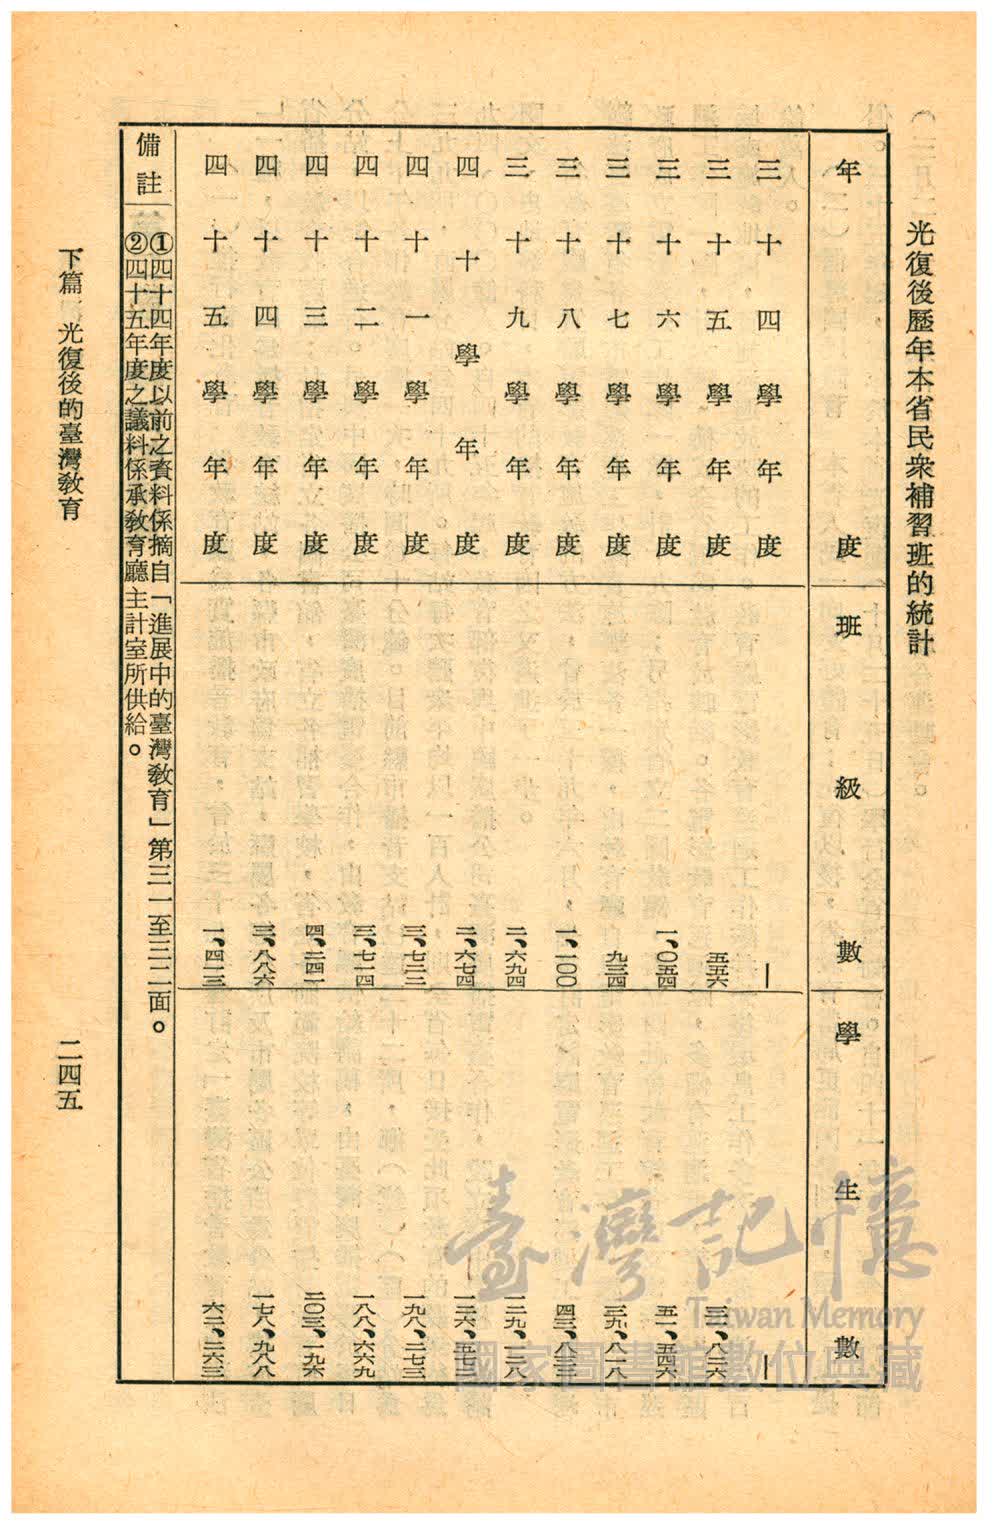 光復後歷年本省民衆補習班的統計
年度 班級數 學生數
三十四學年度 — —
三十五學年度 五五六
三十六學年度 一、〇五四 五一、五四六
三十七學年度 九三四 三九、八一八
三十八學年度 一、一〇〇
三十九學年度 二、六九四 一二九、一二八
四十學年度 二、六七四 一三六、五七三
四十一學年度 三、七二三 一九八、二七三
四十二學年度 三、七一四 一八八、六六九
四十三學年度 四、二四一 二〇三、一九六
四十四學年度 三、八八六 一七八、九八八
四十五學年度 一、四二三 六二、二六三
備註
①四十四年度以前之資料係摘自「進展中的臺灣敎育」第三一至三二面。
②四十五年度之議料係承敎育廳主計室所供給。
下篇 光復後的臺灣敎育
二四五
臺灣記憶
Taiwan Memory
國家圖書館數位典藏